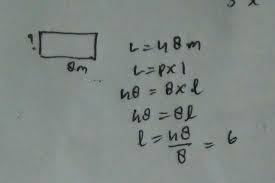 ?
8m
L = 48 m
L = P x l
48 = 8 x l
48 = 8l
l = 48/8 = 6